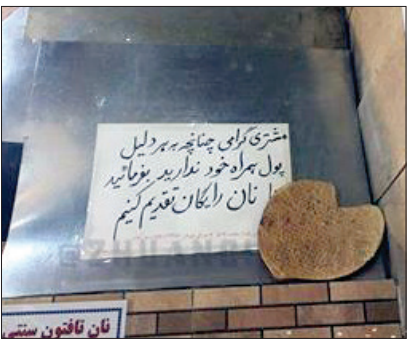 مشتری گرامی چنانچه به هر دلیل
پول همراه خود ندارید بفرمائید
نان رایگان تقدیم کنیم
نان تافتون سنتی